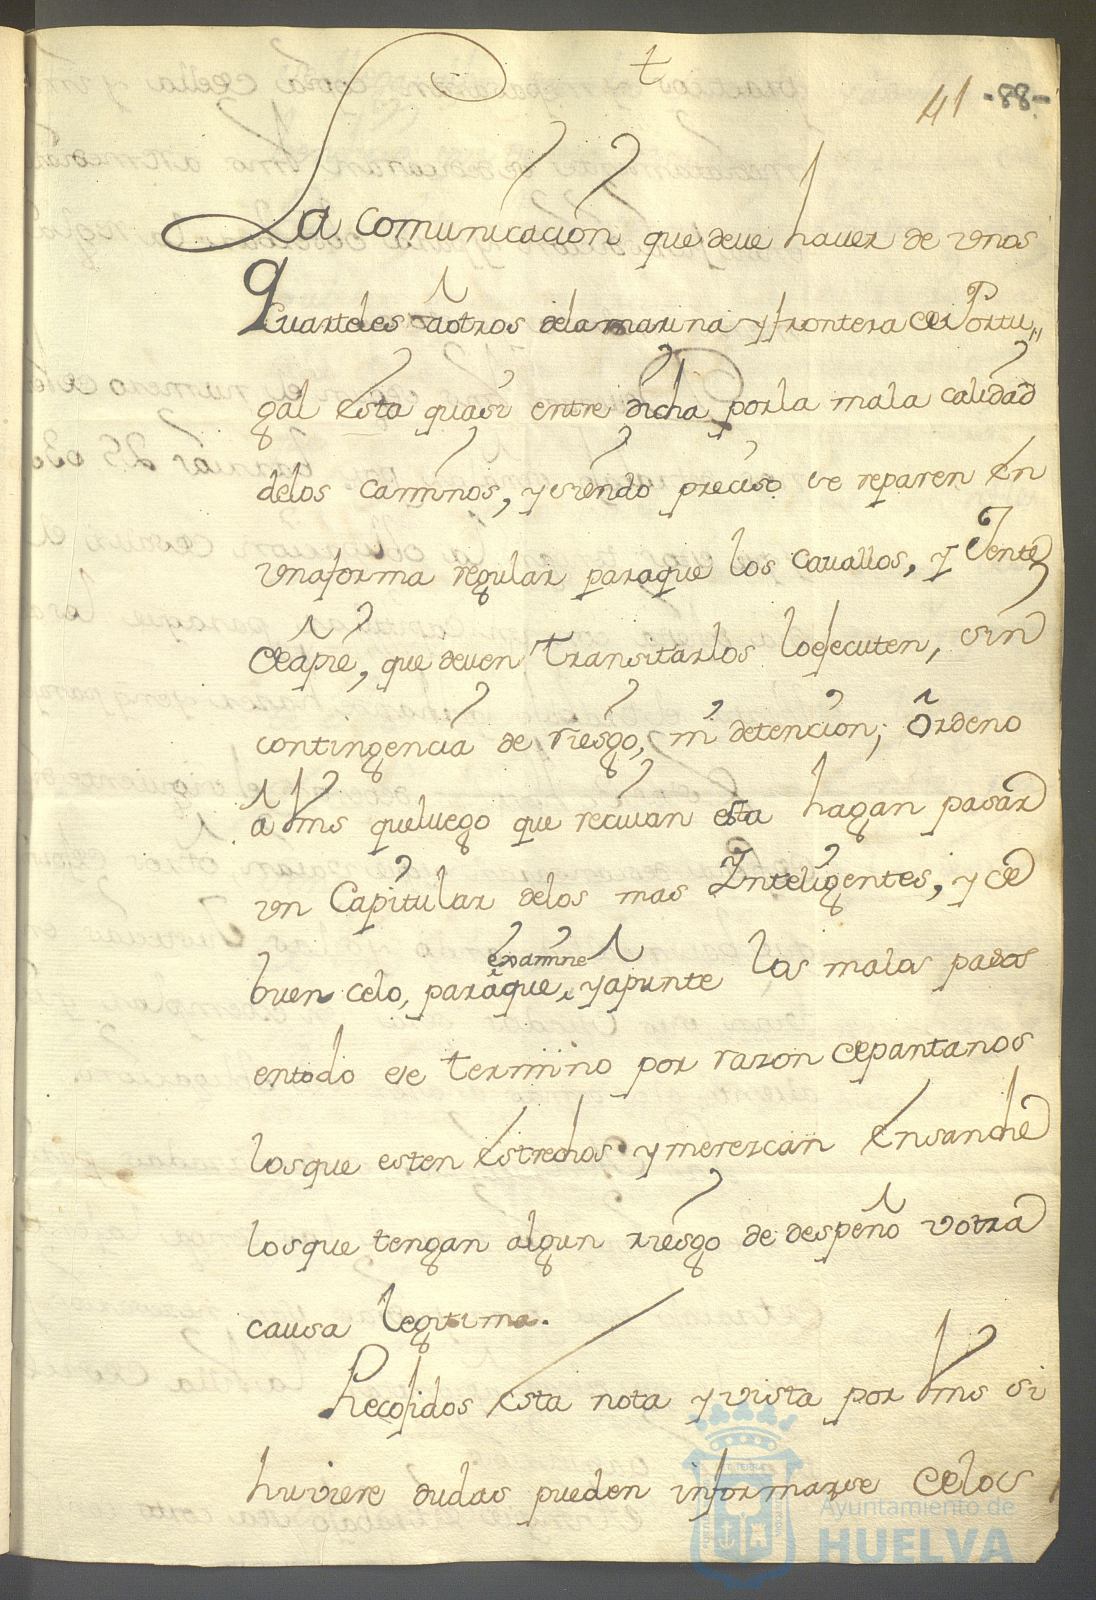 t
41 -88-
La comunicacion que deve haver de unos
Quarteles á otros dela marina y frontera de Portu,,
gál esta quasi entre dicha por la mala calidad
delos caminos, y siendo preciso se reparen en
una forma regular paraque los cavallos, y Jente
deapie, que deven transitarlos lo ejecuten, sin
contingencia de riesgo, ni detencion; Ordeno
á Vms que luego que recivan esta hagan pasar
un Capitular delos mas Inteligentes, y de
examine
buen celo, paraque, y apunte los malos pasos
entodo ese termino por razon de pantanos
losque esten estrechos y merezcan ensanche
losque tengan algun riesgo de despeño u otra
causa legitima.
Recojidos esta nota y vista por Vms si
huviere dudas pueden informarse delos
Ayuntamiento de
HUELVA